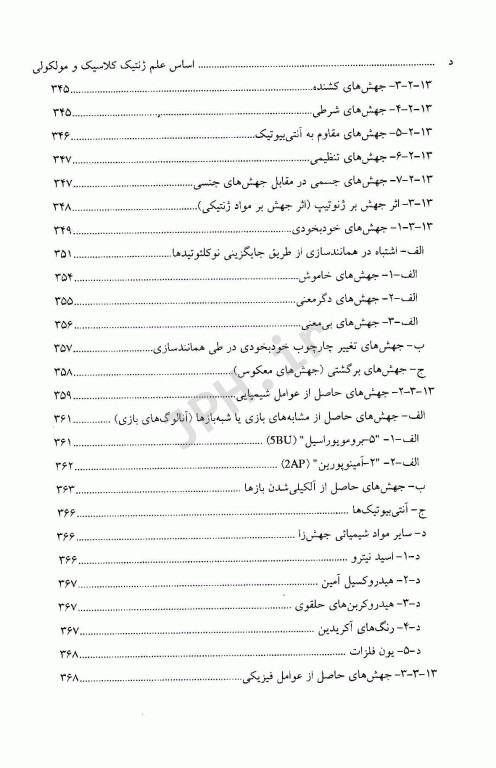 د ........ اساس علم ژنتیک کلاسیک و مولکولی
۱۳-۲-۳- جهش‌های کشنده........۳۴۵
۱۳-۲-۴- جهش‌های شرطی........۳۴۵
۱۳-۲-۵- جهش‌های مقاوم به آنتی‌بیوتیک........۳۴۶
۱۳-۲-۶- جهش‌های تنظیمی........۳۴۷
۱۳-۲-۷- جهش‌های جسمی در مقابل جهش‌های جنسی........۳۴۷
۱۳-۳- اثر جهش بر ژنوتیپ (اثر جهش بر مواد ژنتیکی)........۳۴۸
۱۳-۳-۱- جهش‌های خودبخودی........۳۴۹
الف- اشتباه در همانندسازی از طریق جایگزینی نوکلئوتیدها........۳۵۱
الف-۱- جهش‌های خاموش........۳۵۴
الف-۲- جهش‌های دگرمعنی........۳۵۵
الف-۳- جهش‌های بی‌معنی........۳۵۶
ب- جهش‌های تغییر چارچوب خودبخودی در طی همانندسازی........۳۵۷
ج- جهش‌های برگشتی (جهش‌های معکوس)........۳۵۸
۱۳-۳-۲- جهش‌های حاصل از عوامل شیمیایی........۳۵۹
الف- جهش‌های حاصل از مشابه‌های بازی یا شبه‌بازها (آنالوگ‌های بازی)........۳۶۱
الف-۱- "۵-برومویوراسیل" (5BU)........۳۶۱
الف-۲- "۲-آمینوپورین" (2AP)........۳۶۲
ب- جهش‌های حاصل از آلکیلی‌شدن بازها........۳۶۳
ج- آنتی‌بیوتیک‌ها........۳۶۶
د- سایر مواد شیمیائی جهش‌زا........۳۶۶
د-۱- اسید نیترو........۳۶۶
د-۲- هیدروکسیل آمین........۳۶۷
د-۳- هیدروکربن‌های حلقوی........۳۶۷
د-۴- رنگ‌های آکریدین........۳۶۷
د-۵- یون فلزات........۳۶۸
۱۳-۳-۳- جهش‌های حاصل از عوامل فیزیکی........۳۶۸
JPH.ir